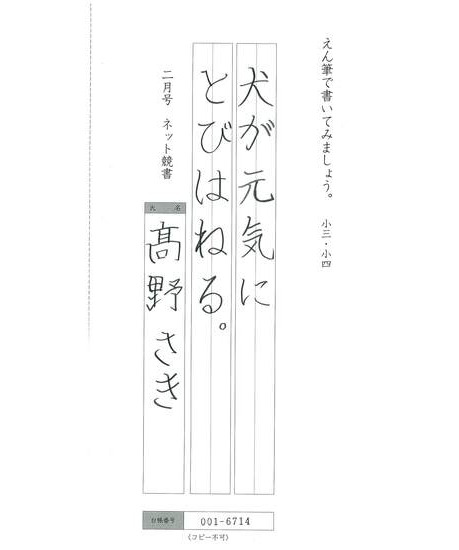 えん筆で書いてみましょう。 小三・小四
犬が元気に
とびはねる。
二月号 ネット競書
氏 名
髙野さき
台帳番号 001-6714
(コピー不可)